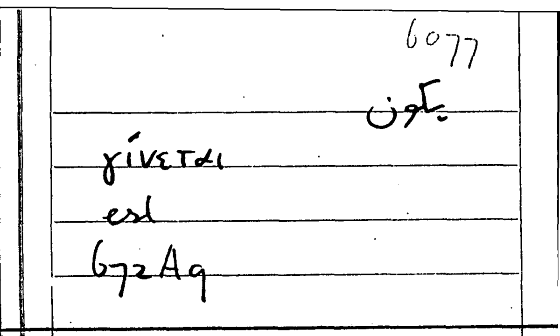 6077
يكون
γίνεται
est
672A9